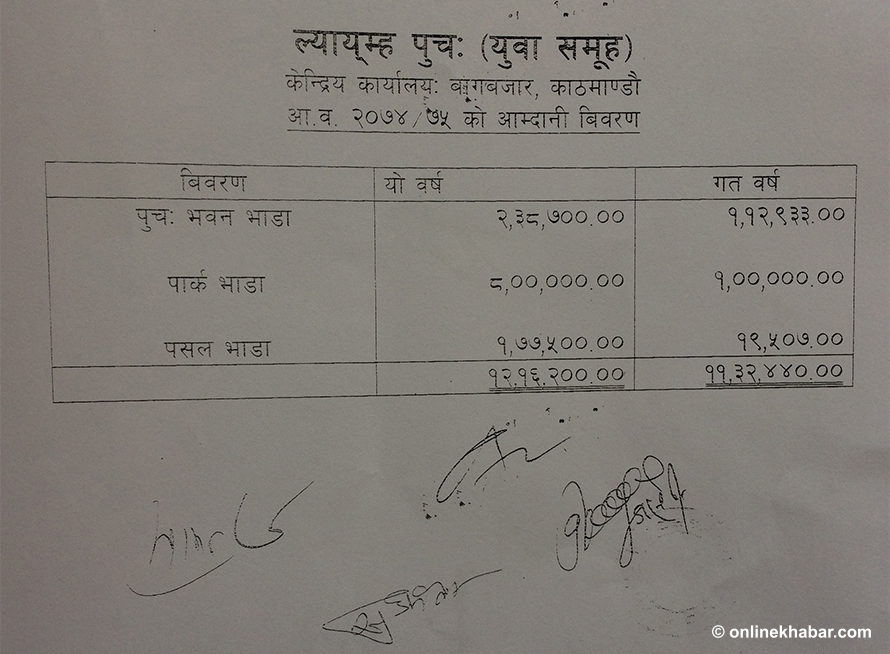 ल्याय्म्ह पुचः (युवा समूह)
केन्द्रिय कार्यालयः बागबजार, काठमाण्डौ
आ.व. २०७४/७५ को आम्दानी बिवरण
बिवरण यो वर्ष गत वर्ष
पुचः भवन भाडा २,३८,७००.०० १,१२,९३३.००
पार्क भाडा ८,००,०००.०० १,००,०००.००
पसल भाडा १,७७,५००.०० १९,५०७.००
१२,१६,२००.०० ११,३२,४४०.००
© onlinekhabar.com